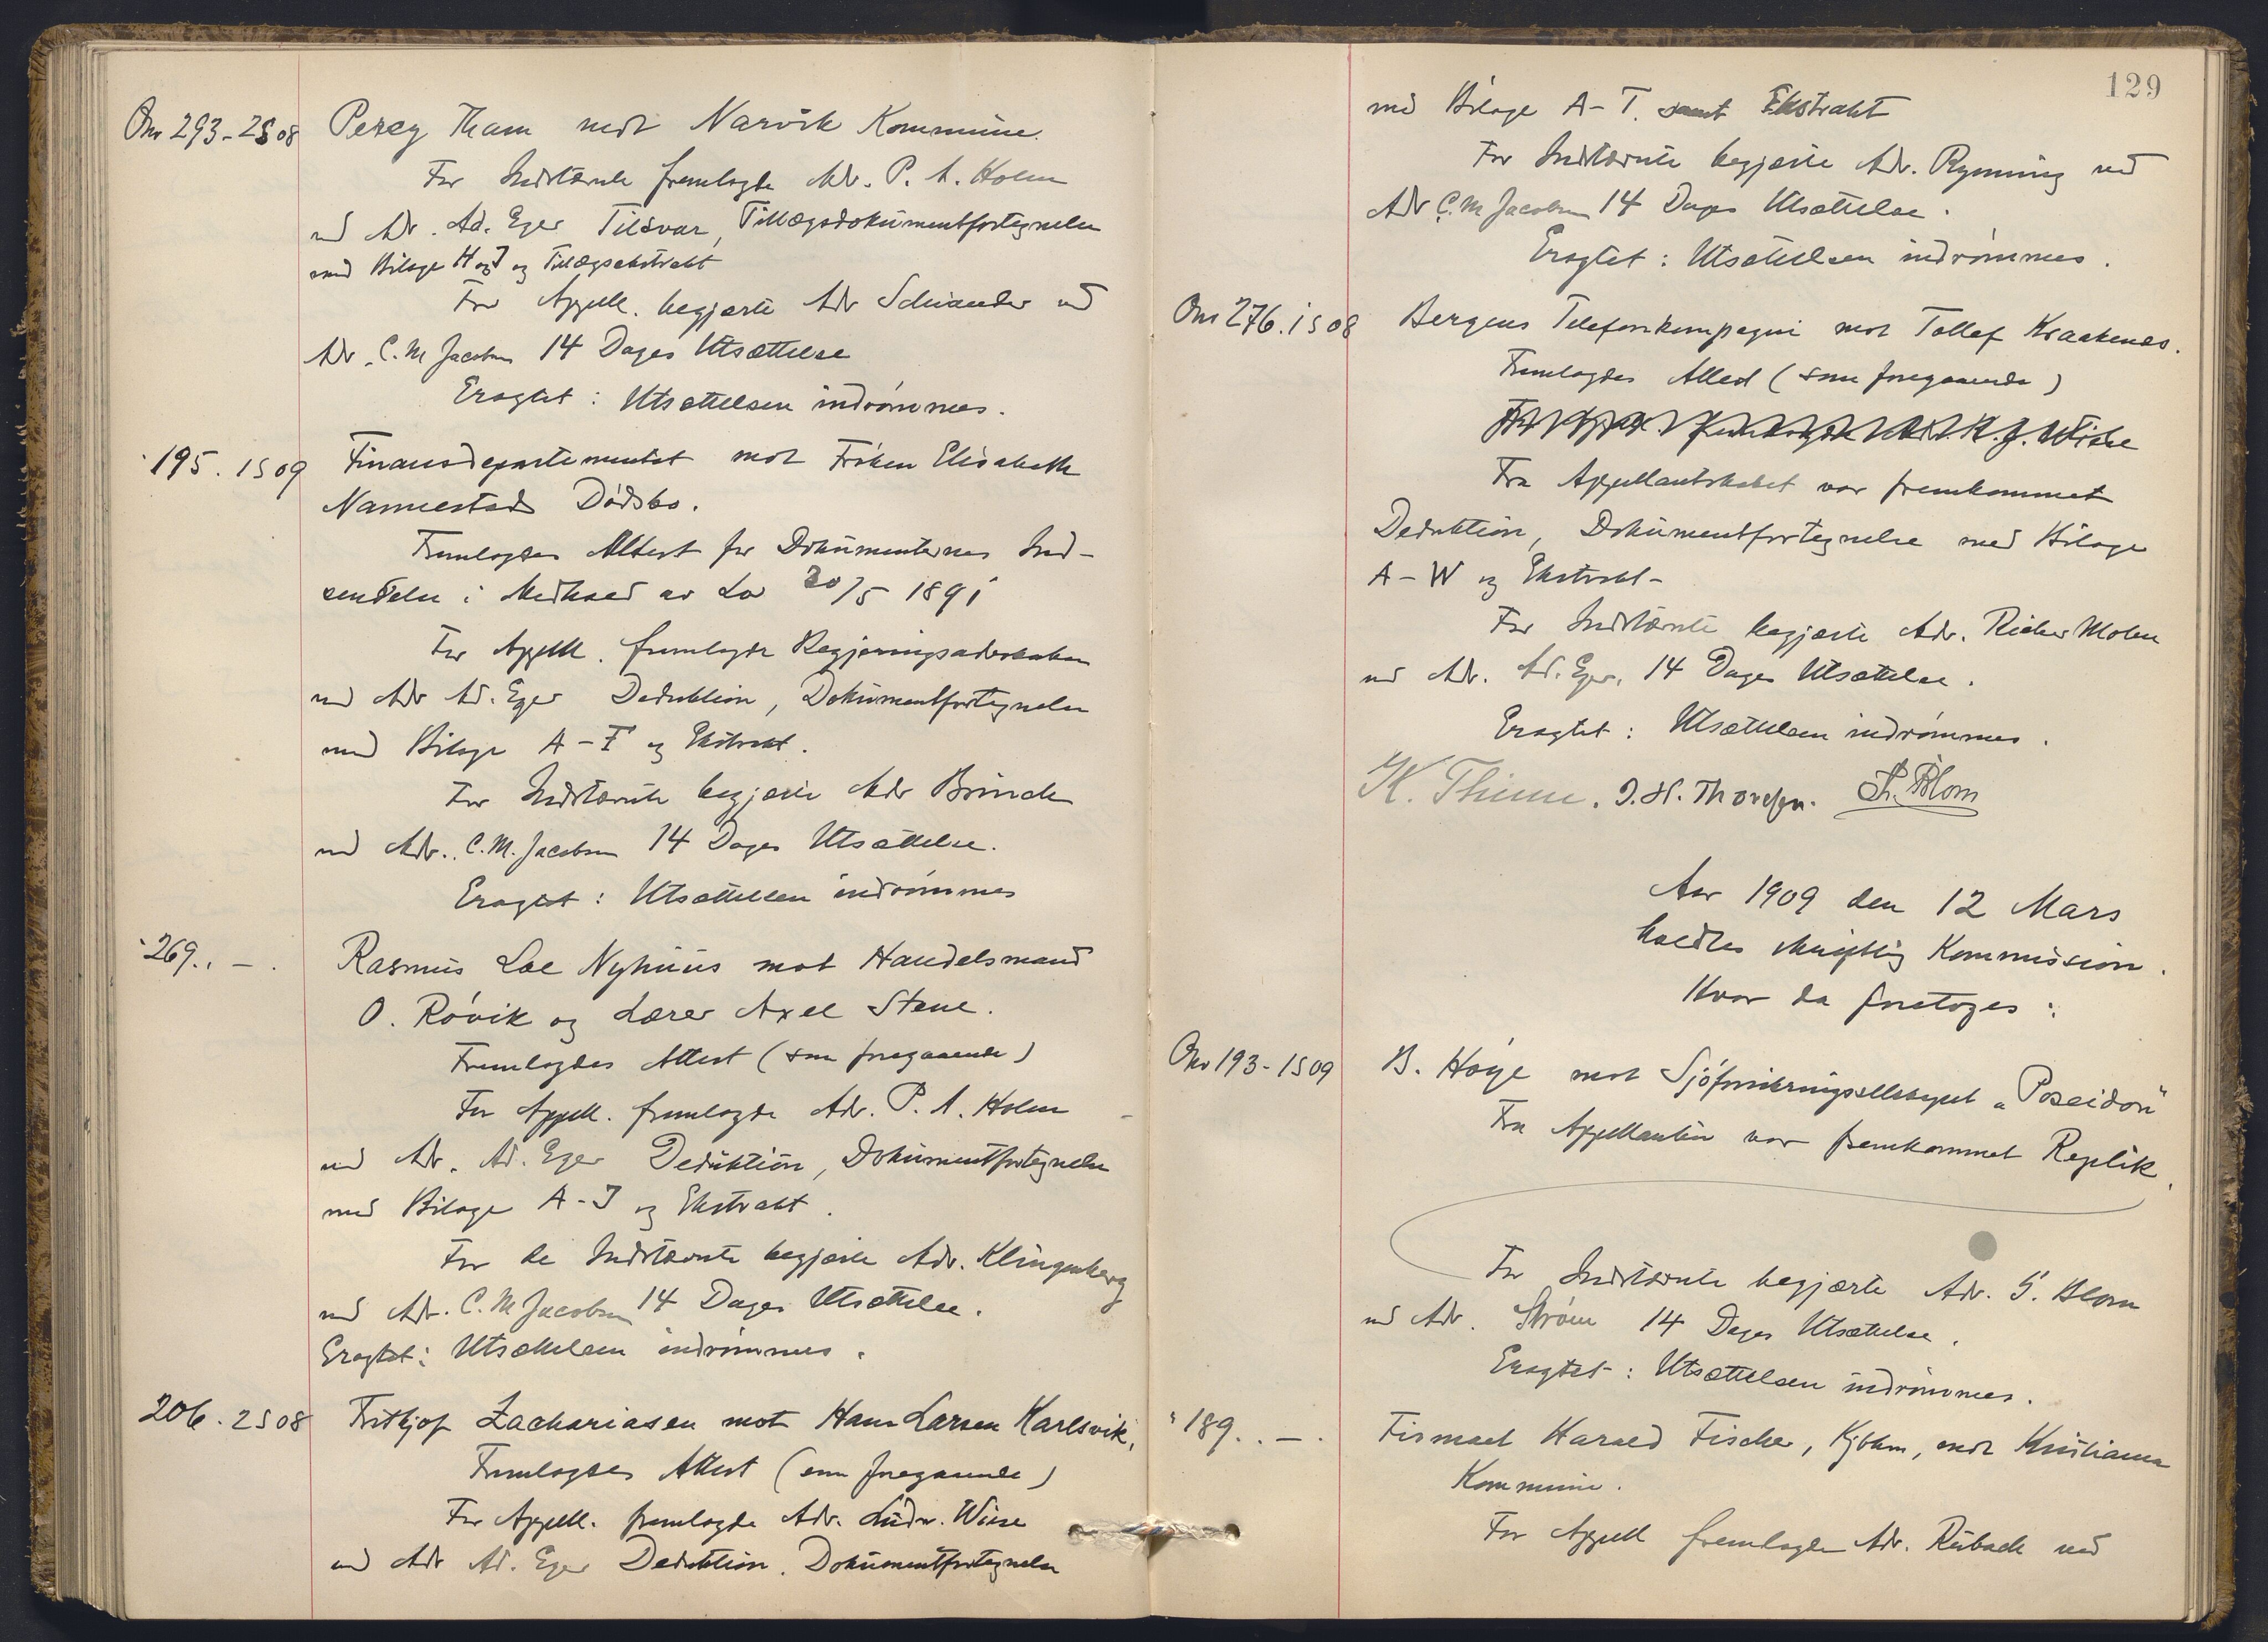 Ono 293-2S08 Percy Tham mot Narvik Kommune.
For Indstævnte fremlagde Adv. P. A. Holm
ved Adv. Ad. Eger Tilsvar, Tillægsdokumentfortegnelse
med Bilage H og J og Tillægsekstrakt
For Appell. begjærte Adv Schiander ved
Adv. C. M Jacobsen 14 Dages Utsættelse
Eragtet: Utsættelsen indrømmes.
" 195. 1S09 Finansdepartementet mot Frøken Elisabeth
Nannestads Dødsbo.
Fremlagdes Attest for Dokumenternes Ind-
sendelse i Medhold av Lov 20/5 1891
For Appell. fremlagde Regjeringsadvokaten
ved Adv Ad. Eger Deduktion, Dokumentfortegnelse
med Bilage A-F og Ekstrakt.
For Indstævnte begjærte Adv Brinch
ved Adv. C. M. Jacobsen 14 Dages Utsættelse.
Eragtet: Utsættelsen indrømmes
" 269. . — . Rasmus Loe Nyhuus mot Handelsmand
O. Røvik og Lærer Axel Stene.
Fremlagdes Attest (som foregaaende)
For Appell. fremlagde Adv. P. A. Holm
ved Adv. Ad. Eger Deduktion, Dokumentfortegnelse
med Bilage A-J og Ekstrakt.
For de Indstævnte begjærte Adv. Klingenberg
ved Adv. C. M Jacobsen 14 Dages Utsættelse.
Eragtet: Utsættelsen indrømmes.
206. 2S08 Fritkjof Zachariasen mot Hans Larsen Karlsvik.
Fremlagdes Attest (som foregaaende)
For Appell. fremlagde Adv. Ludv. Wiese
ved Adv Ad. Eger Deduktion. Dokumentfortegnelse
129
med Bilage A-T. samt Ekstrakt
For Indstævnte begjærte Adv. Rynning ved
Adv C. M Jacobsen 14 Dages Utsættelse.
Eragtet: Utsættelsen indrømmes.
Ono 276. 1S08 Bergens Telefonkompagni mot Tollef Kraakenes.
Fremlagdes Attest (som foregaaende)
For Appell. fremlagde Adv. K. J. Wiese
Fra Appellantskabet var fremkommet
Deduktion, Dokumentfortegnelse med Bilage
A-W og Ekstrakt-
For Indstævnte begjærte Adv. Richer Molen
ved Adv. Ad. Eger. 14 Dages Utsættelse.
Eragtet: Utsættelsen indrømmes.
K. Thime. J. H. Thoresen. Blom
Aar 1909 den 12 Mars
holdtes skriftlig Kommission.
Hvor da foretoges:
Ono 193-1S09 B. Høye mot Sjøforsikringsselskapet „Poseidon"
Fra Appellanten var fremkommet Replik.
For Indstævnte begjærte Adv. G. Blom
ved Adv. Strøm 14 Dages Utsættelse.
Eragtet: Utsættelsen indrømmes.
" 189. . — . Firmaet Harald Fischer, Kjbhvn, mot Kristiania
Kommune.
For Appell fremlagde Adv. Rubach ved